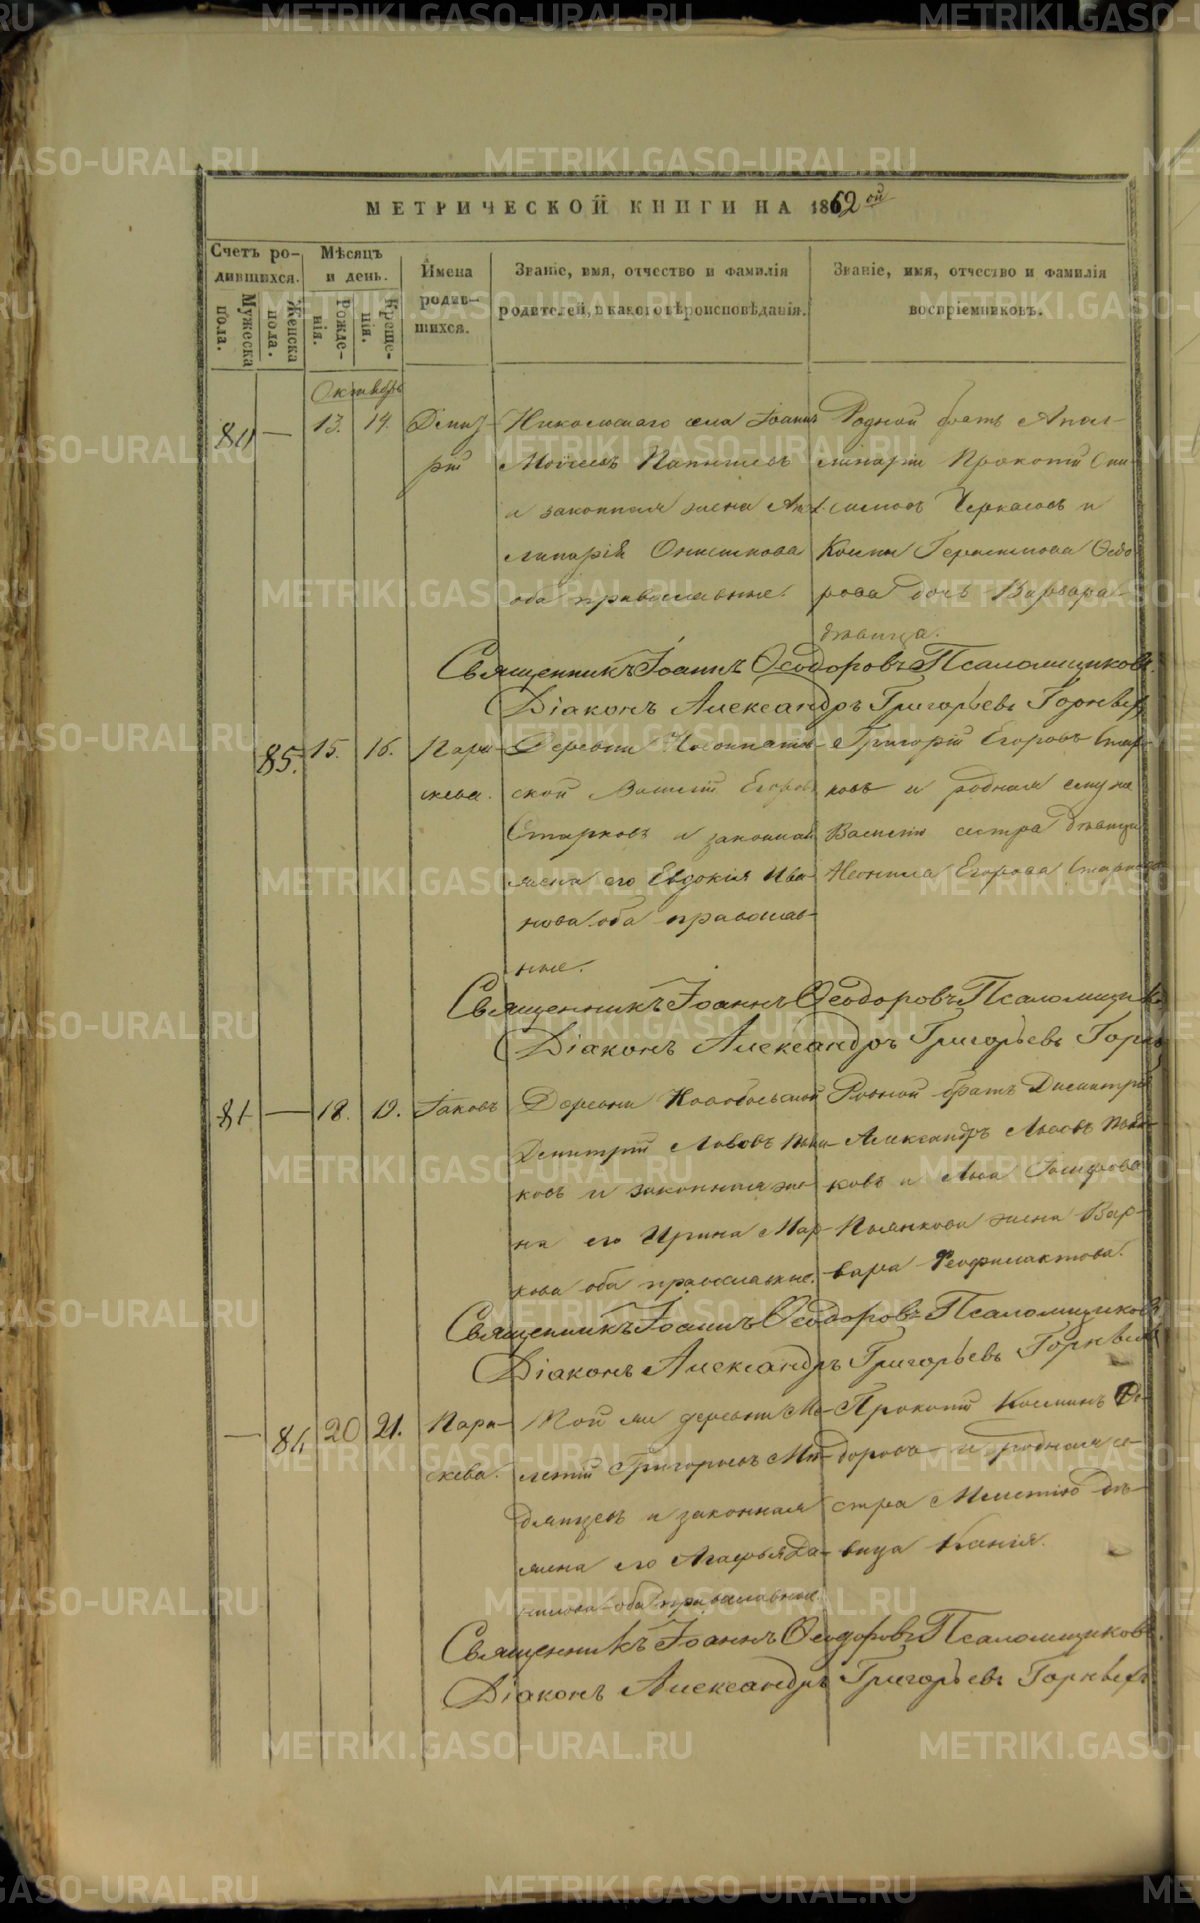 МЕТРИЧЕСКОЙ КНИГИ НА 1862 ой
Счетъ родившихся.
Мужеска пола.
Женска пола.
Мѣсяцъ и день.
Рожденія.
Крещенія.
Имена родившихся.
Званіе, имя, отчество и фамилія
родителей, и какого вѣроисповѣданія.
Званіе, имя, отчество и фамилія
воспріемниковъ.
Октябрь
80 — 13. 14. Дмит-
рій
села Іоаннъ
Моисеевъ
и законная жена Апол-
линарія Онисимова
оба православные.
Родной братъ Апол-
линаріи Прокопій Они-
симовъ Черкасовъ и
Космы Герасимова Ѳедо-
рова дочь Варвара
дѣвица.
Священникъ Іоаннъ Ѳеодоровъ Псаломщиковъ.
Діаконъ Александръ Григорьевъ
85. 15. 16. Пара-
скева.
Деревни
ской Василій Егоровъ
Старковъ и законная
жена его Евдокія Ива-
нова оба православ-
ные.
Григорій Егоровъ Стар-
ковъ и родная ему
Василію сестра дѣвица
Неонила Егорова Старкова
Священникъ Іоаннъ Ѳеодоровъ
Діаконъ Александръ Григорьевъ
81 — 18. 19. Іаковъ
Деревни
Димитрій Львовъ
ковъ и законная же-
на его Ирина Мар-
кова оба православные.
Родной братъ Димитрія
Александръ Львовъ
ковъ и
жена Вар-
вара Феофилактова.
Священникъ Іоаннъ Ѳеодоровъ Псаломщиковъ
Діаконъ Александръ Григорьевъ
— 86 20 21. Пара-
скева.
Той же деревни Ме-
летій Григорьевъ
и законная
жена его Агафья Да-
нилова оба православные.
Прокопій Косминъ Ѳе-
доровъ и родная се-
стра Мелетію дѣ-
вица
Священникъ Іоаннъ Ѳеодоровъ Псаломщиковъ.
Діаконъ Александръ Григорьевъ
METRIKI.GASO-URAL.RU